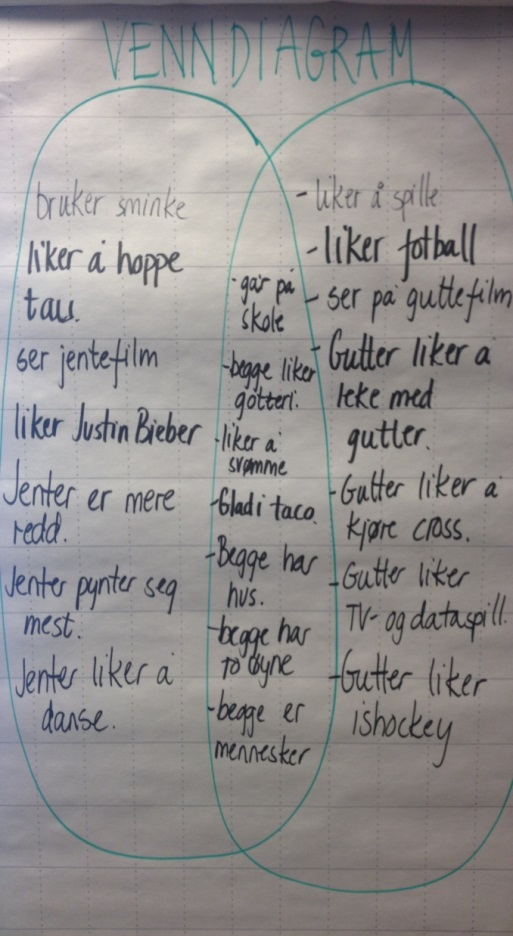 VENNDIAGRAM
bruker sminke
liker å hoppe
tau.
ser jentefilm
liker Justin Bieber
Jenter er mere
redd.
Jenter pynter seg
mest.
Jenter liker å
danse.
- går på
skole
- begge liker
gotteri.
- liker å
svømme
- Glad i taco.
- Begge har
hus.
- begge har
to øyne
- begge er
mennesker
- liker å spille
- liker fotball
- ser på guttefilm
- Gutter liker å
leke med
gutter.
- Gutter liker å
kjøre cross.
- Gutter liker
TV- og dataspill.
- Gutter liker
ishockey